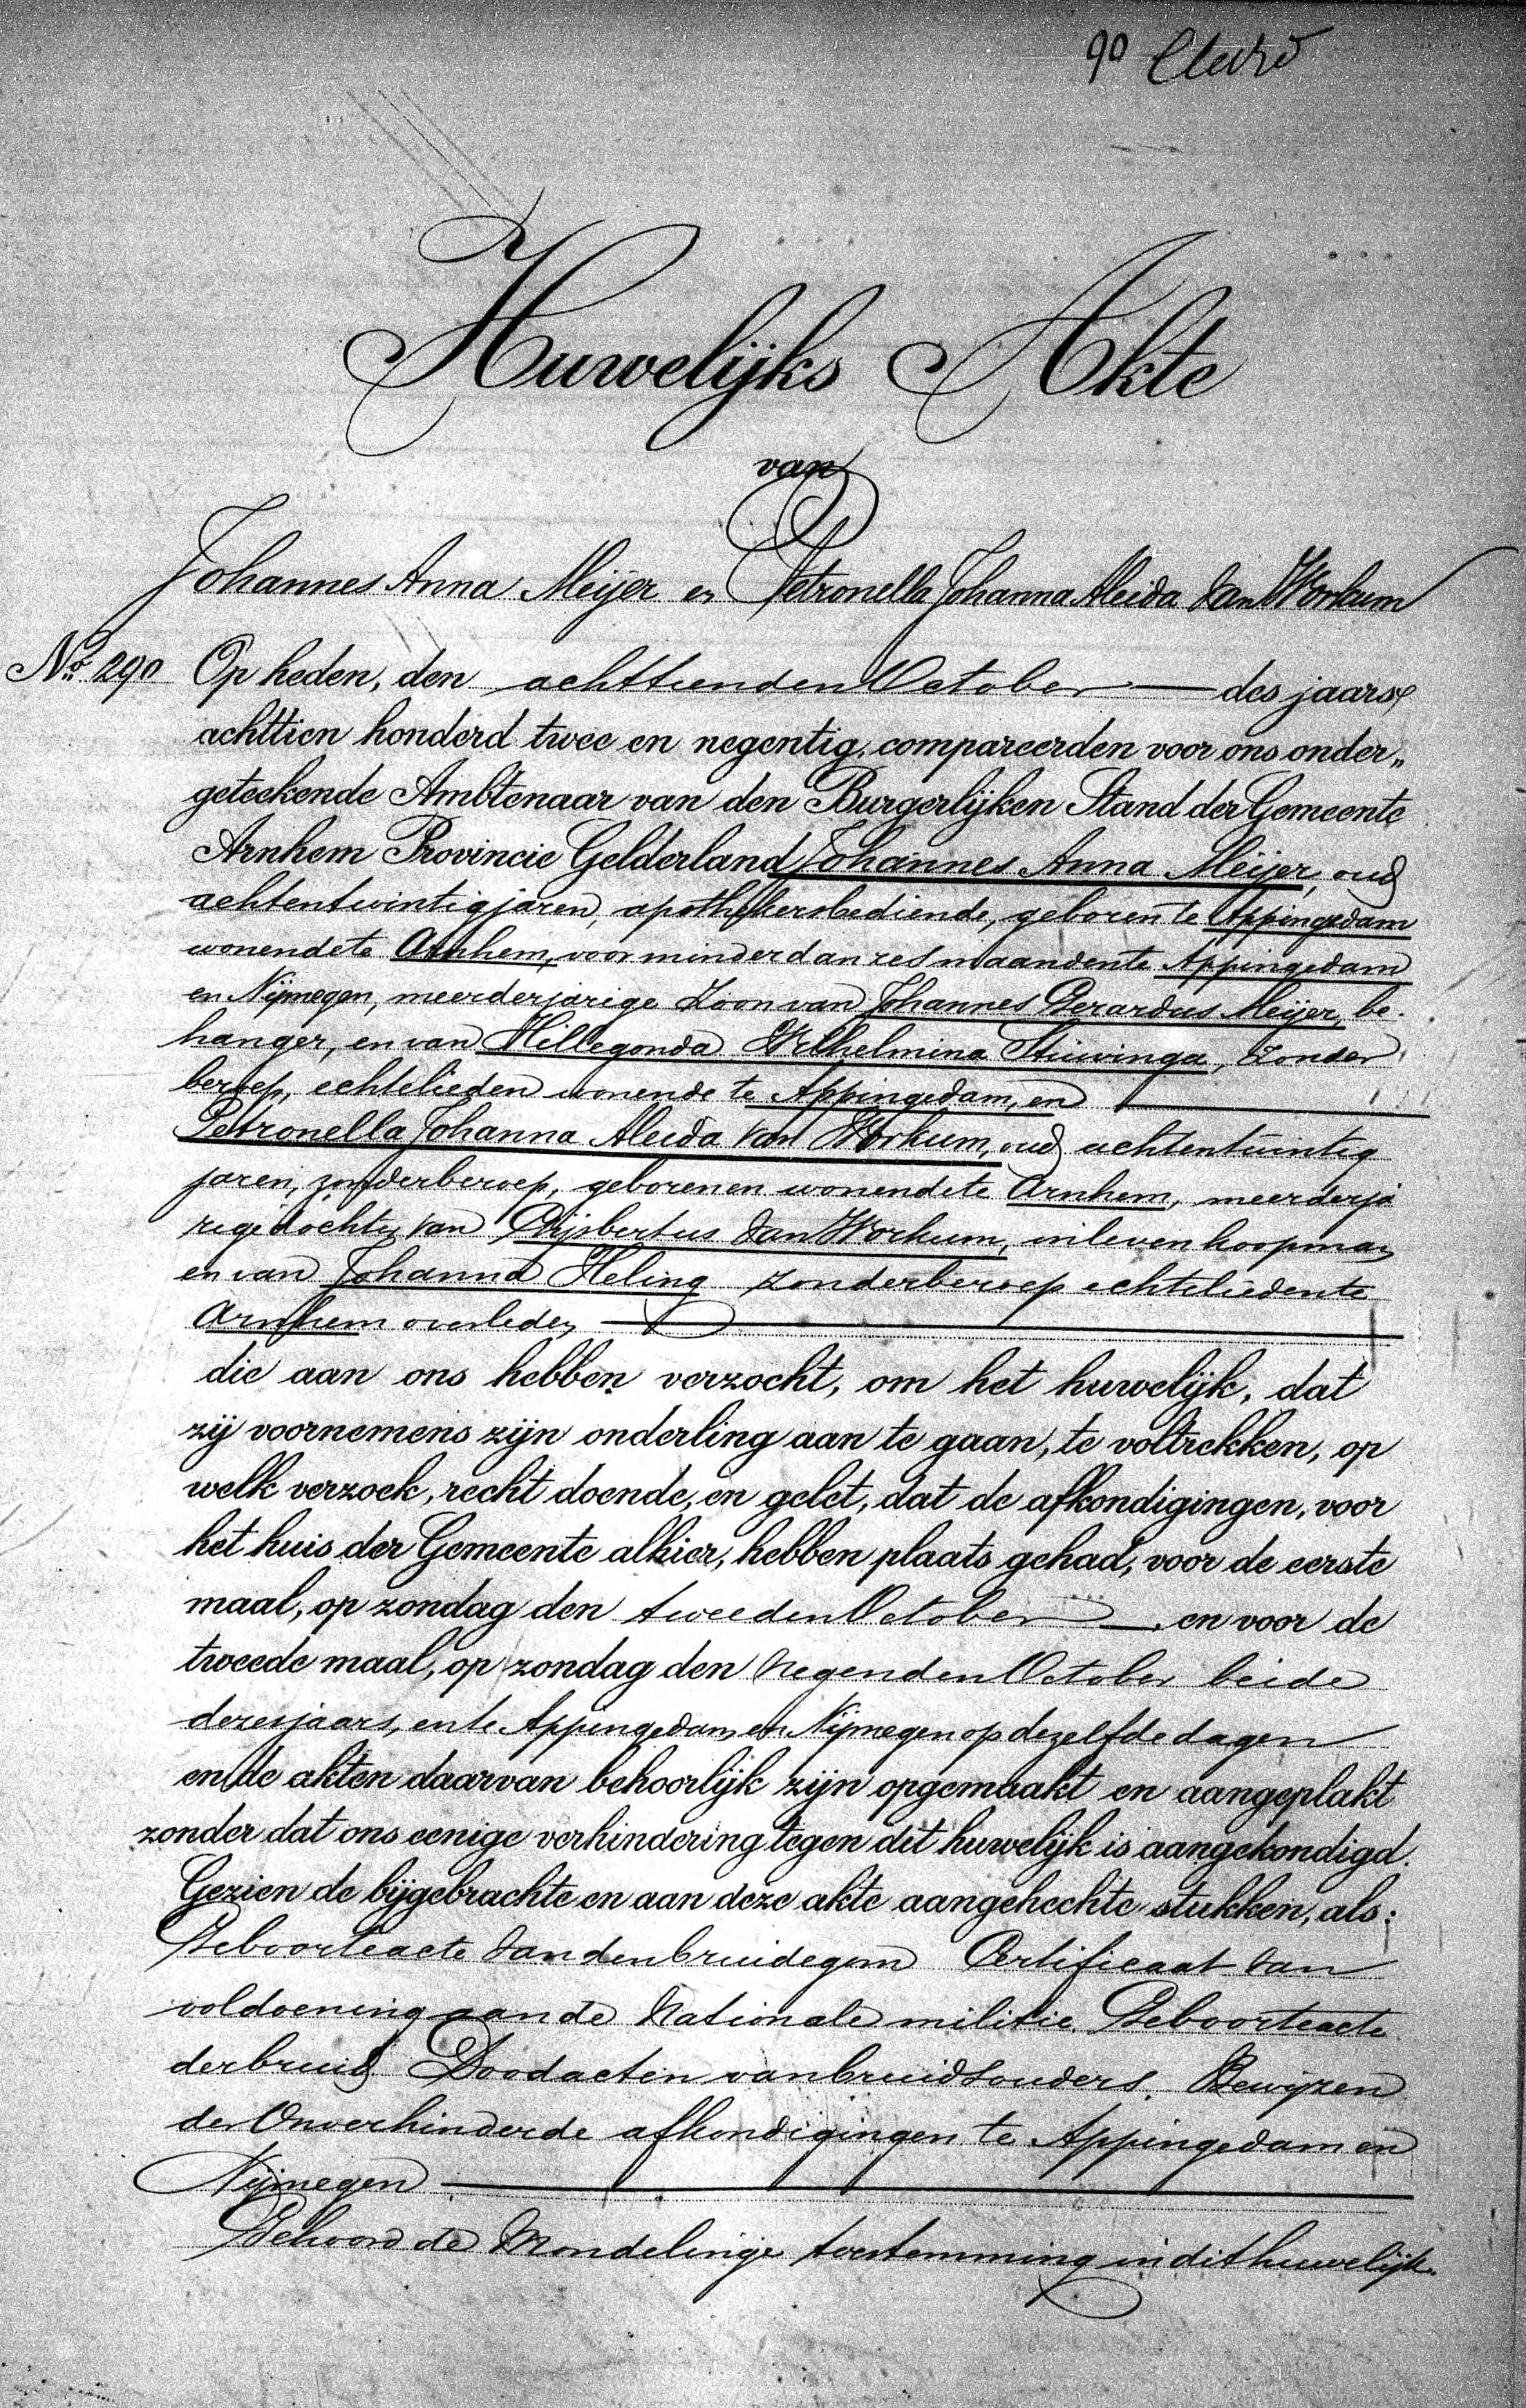 90
Huwelijks Akte
van
Johannes Anna Meijer en Petronella Johanna Aleida van Workum
No. 290 Op heden, den achttienden October — des jaars
achttien honderd twee en negentig, compareerden voor ons onder„
geteekende Ambtenaar van den Burgerlijken Stand der Gemeente
Arnhem Provincie Gelderland Johannes Anna Meijer, oud
achtentwintig jaren, apothekersbediende, geboren te Appingedam
wonende te Arnhem, voor minder dan zes maanden te Appingedam
en Nijmegen, meerderjarige Zoon van Johannes Gerardus Meijer, be-
hanger, en van Hillegonda Wilhelmina Stuivinga, zonder
beroep, echtelieden wonende te Appingedam, en
Petronella Johanna Aleida van Workum, oud achtentwintig
jaren, zonder beroep, geboren en wonende te Arnhem, meerderja
rige dochter van Gijsbertus van Workum, in leven koopman
en van Johanna Heling zonder beroep echtelieden te
Arnhem overleden
die aan ons hebben verzocht, om het huwelijk, dat
zij voornemens zijn onderling aan te gaan, te voltrekken, op
welk verzoek, recht doende, en gelet, dat de afkondigingen, voor
het huis der Gemeente alhier, hebben plaats gehad, voor de eerste
maal, op zondag den tweeden October —, en voor de
tweede maal, op zondag den negenden October beide
dezes jaars, en te Appingedam en Nijmegen op dezelfde dagen
en de akten daarvan behoorlijk zijn opgemaakt en aangeplakt
zonder dat ons eenige verhindering tegen dit huwelijk is aangekondigd.
Gezien de bijgebrachte en aan deze akte aangehechte stukken, als:
Geboorteacte van den bruidegom Certificaat van
voldoening aan de Nationale militie. Geboorteacte
der bruid Doodacten van bruidsouders. Bewijzen
der Onverhinderde afkondigingen te Appingedam en
Nijmegen
Gehoord de Mondelinge toestemming in dit huwelijk.